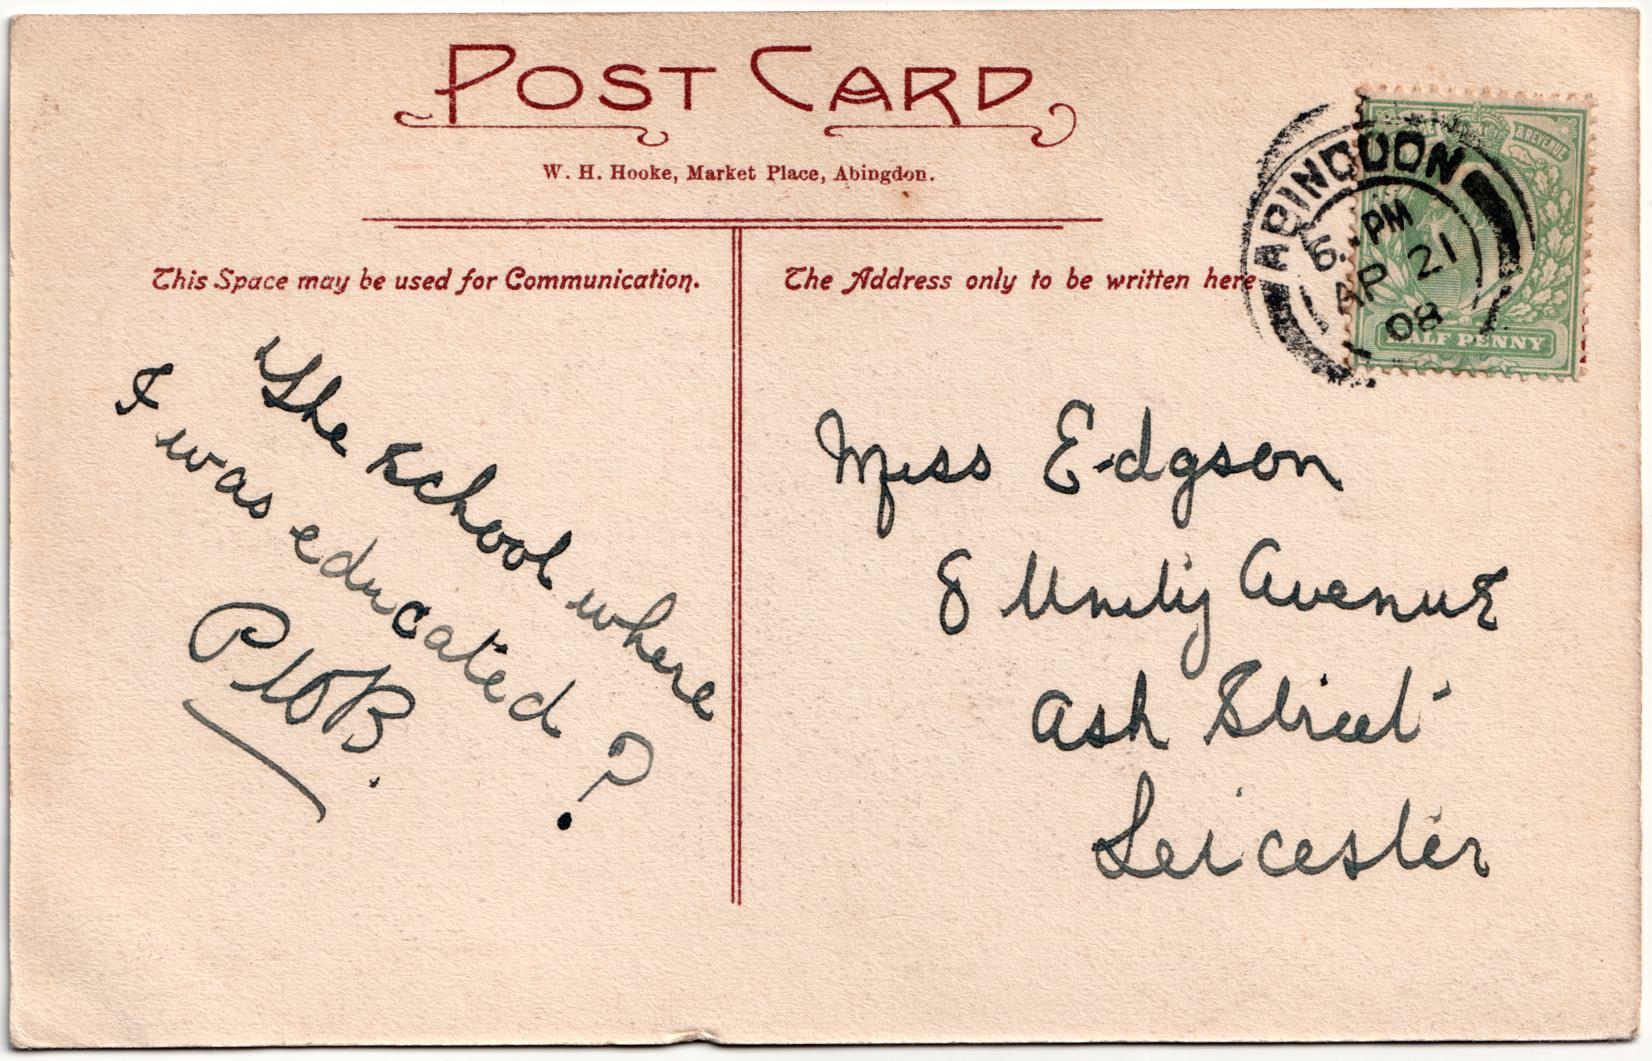 POST CARD
W. H. Hooke, Market Place, Abingdon.
This Space may be used for Communication.
The Address only to be written here
ABINGDON
6. PM
AP 21
08
& REVENUE
HALF PENNY
The school where
I was educated ?
PWB.
Miss Edgson
8 Unity Avenue
Ash Street
Leicester